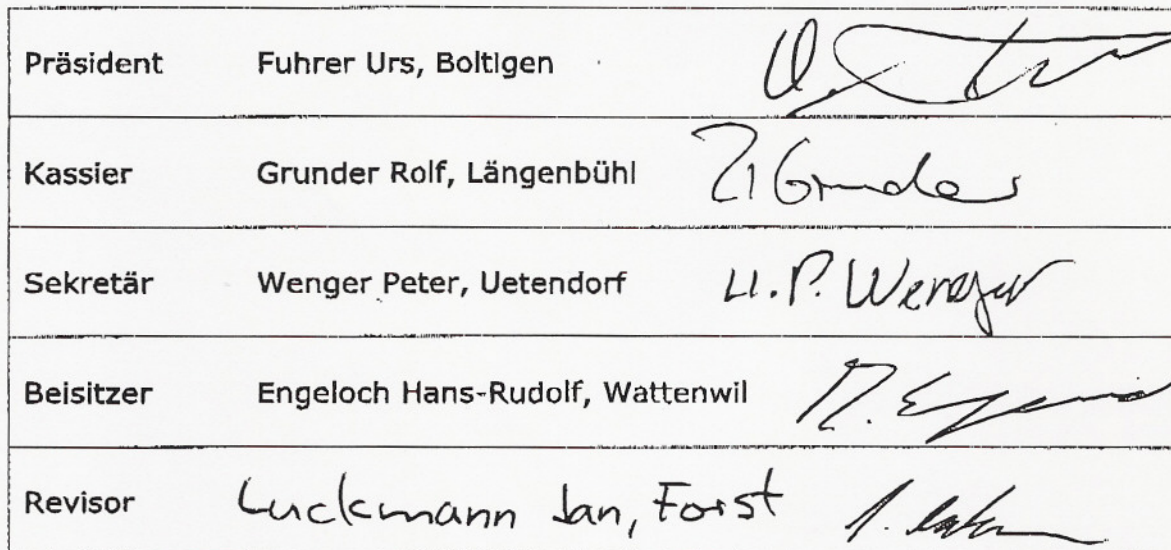 Präsident Fuhrer Urs, Boltigen
Kassier Grunder Rolf, Längenbühl R Grunder
Sekretär Wenger Peter, Uetendorf H.P. Wenger
Beisitzer Engeloch Hans-Rudolf, Wattenwil
Revisor Luckmann Jan, Forst